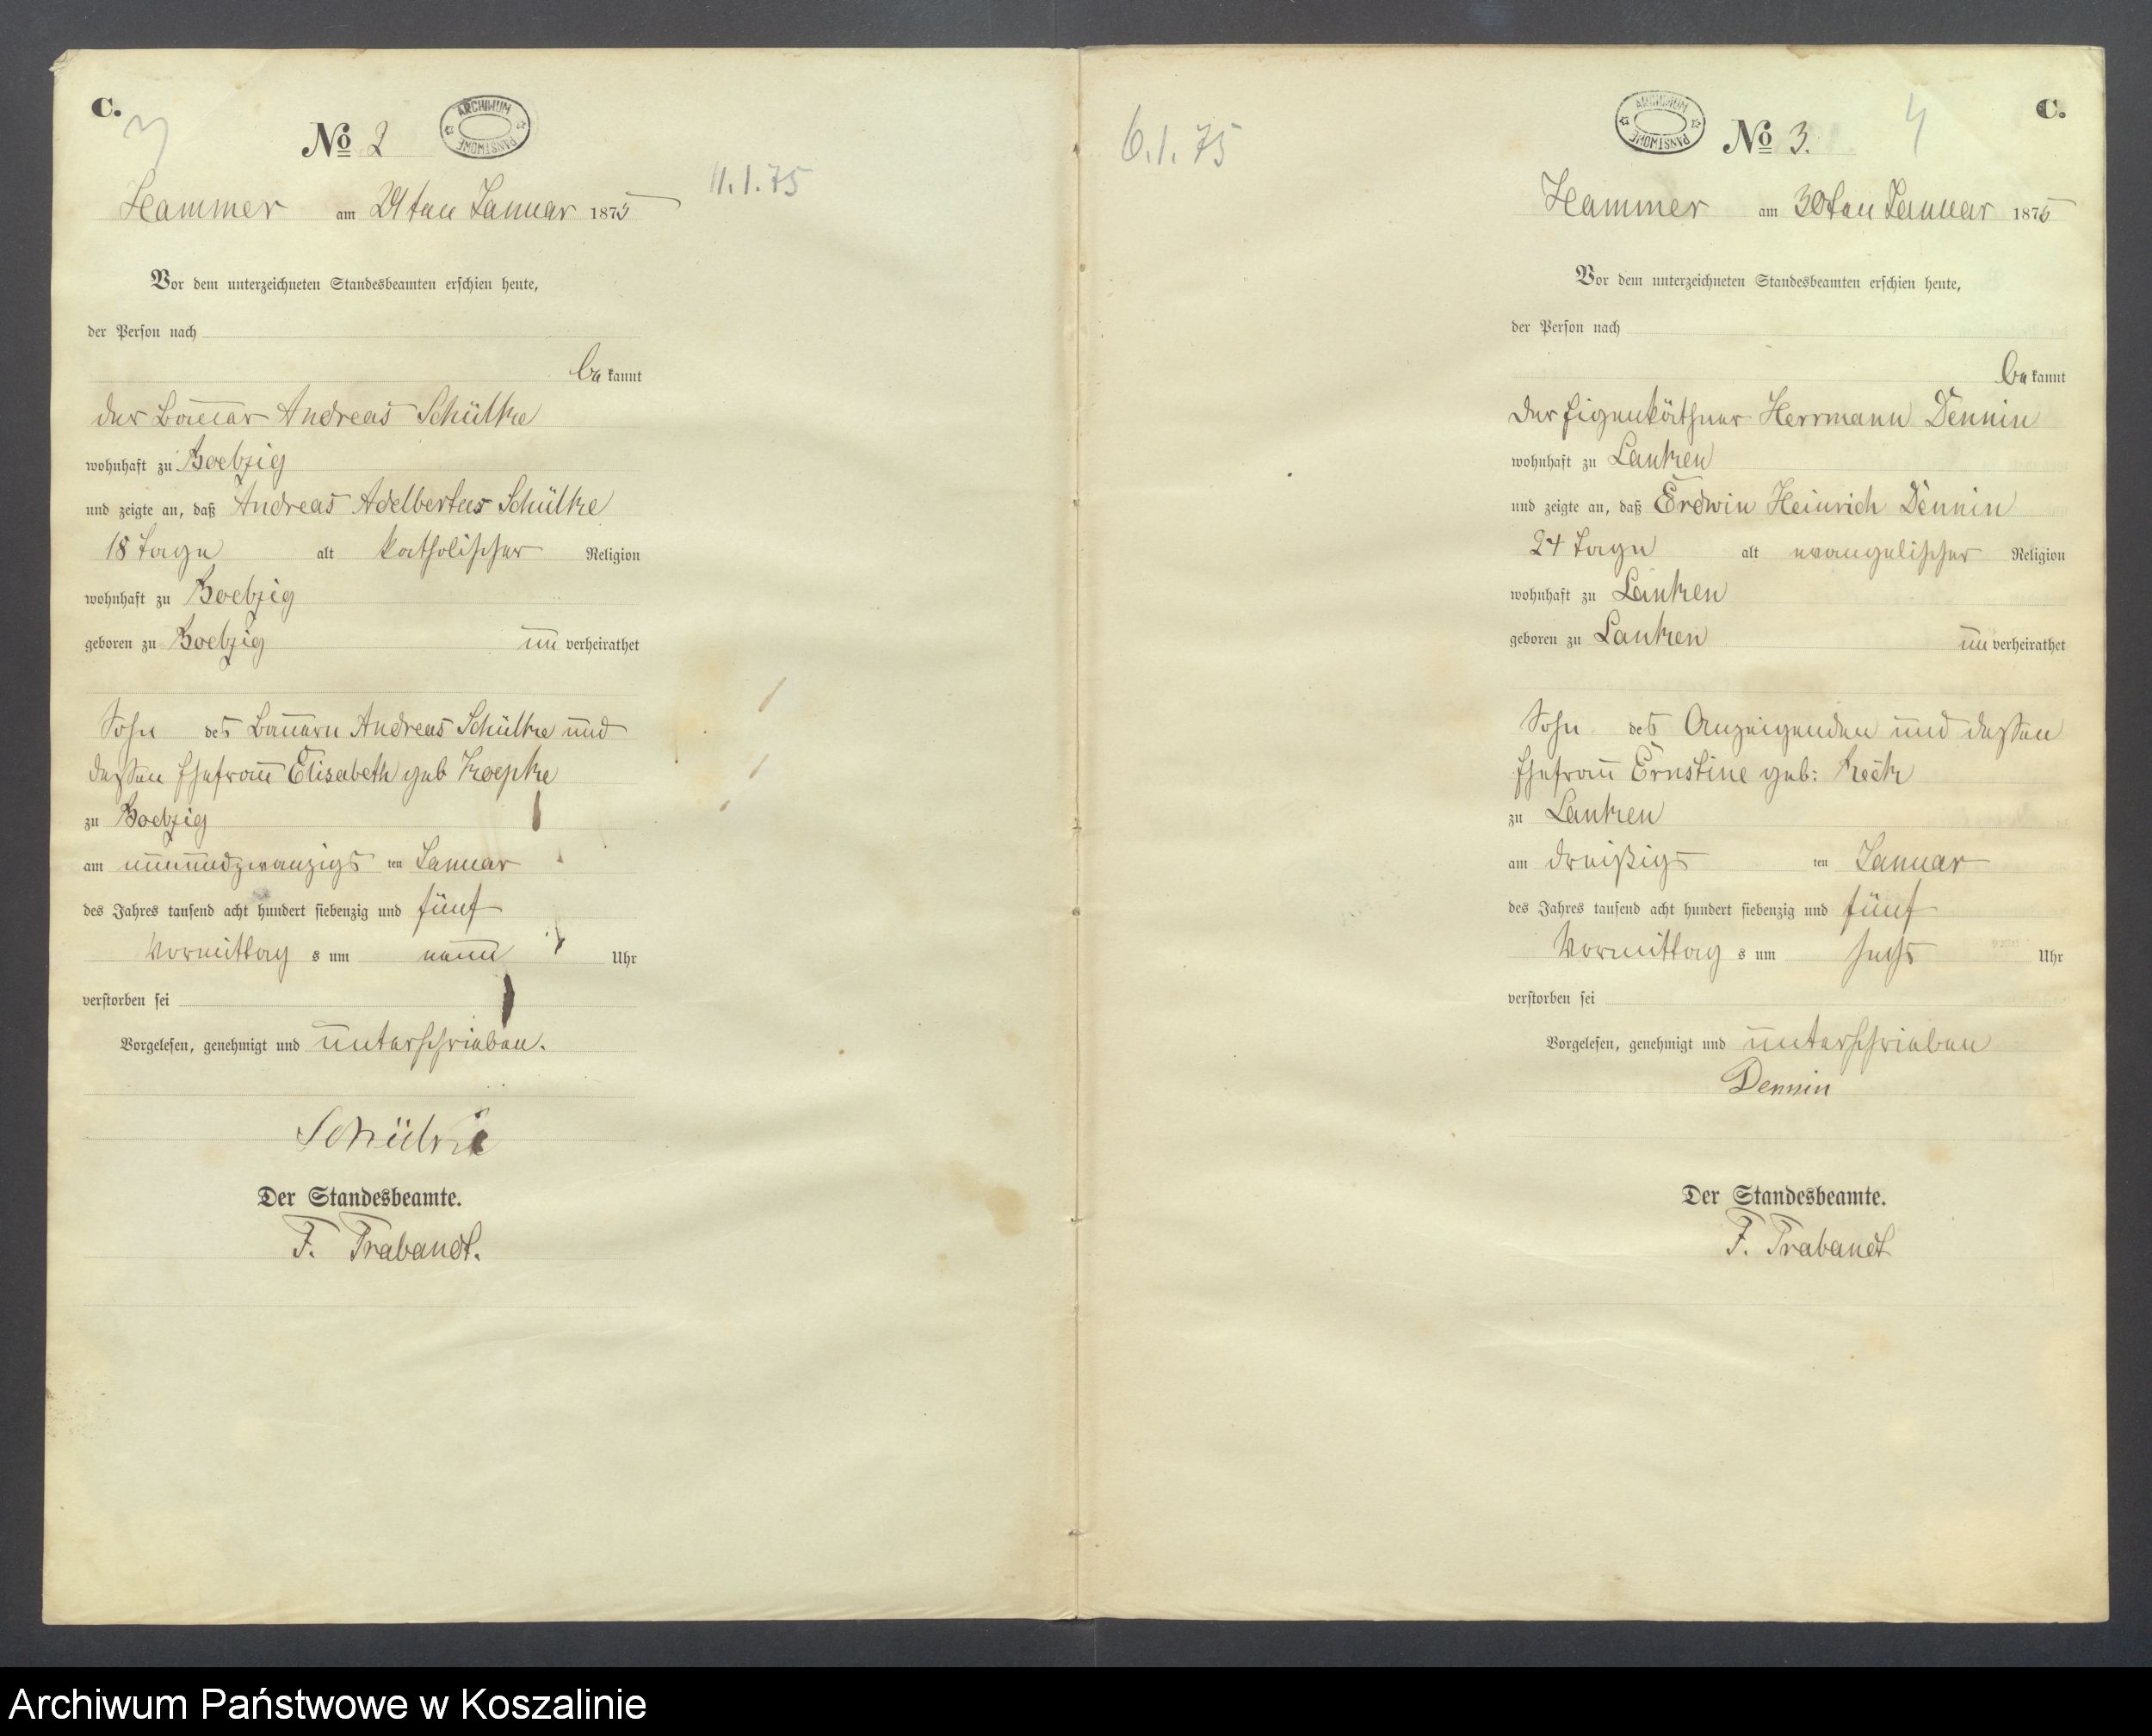 C.
3
No 2
ARCHIWUM PAŃSTWOWE
11.1.75
Hammer am 29ten Januar 1875
Vor dem unterzeichneten Standesbeamten erschien heute,
der Person nach
be kannt
der Bauer Andreas Schülke
wohnhaft zu Boebzig
und zeigte an, daß Andreas Adelbertus Schülke
18 Tage alt katholischer Religion
wohnhaft zu Boebzig
geboren zu Boebzig un verheirathet
Sohn des Bauern Andreas Schülke und
dessen Ehefrau Elisabeth geb Koepke
zu Boebzig
am neunundzwanzigs ten Januar
des Jahres tausend acht hundert siebenzig und fünf
Vormittag s um neun Uhr
verstorben sei
Vorgelesen, genehmigt und unterschrieben.
Schülke
Der Standesbeamte.
F. Trabandt.
6.1.75
ARCHIWUM PAŃSTWOWE
No 3.
4
C.
Hammer am 30ten Januar 1875
Vor dem unterzeichneten Standesbeamten erschien heute,
der Person nach
be kannt
der Eigenkäthner Herrmann Dennin
wohnhaft zu Lanken
und zeigte an, daß Erdwin Heinrich Dennin
24 Tage alt evangelischer Religion
wohnhaft zu Lanken
geboren zu Lanken un verheirathet
Sohn des Anzeigenden und dessen
Ehefrau Ernstine geb:
zu Lanken
am dreißigs ten Januar
des Jahres tausend acht hundert siebenzig und fünf
Vormittag s um sechs Uhr
verstorben sei
Vorgelesen, genehmigt und unterschrieben
Dennin
Der Standesbeamte.
F. Trabandt
Archiwum Państwowe w Koszalinie